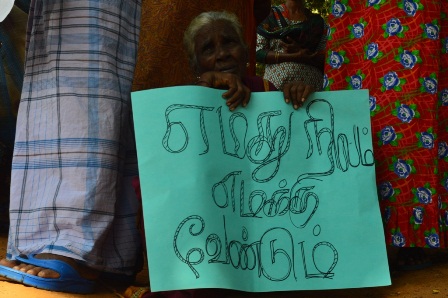 எமது நிலம்
எமக்கு
வேண்டும்